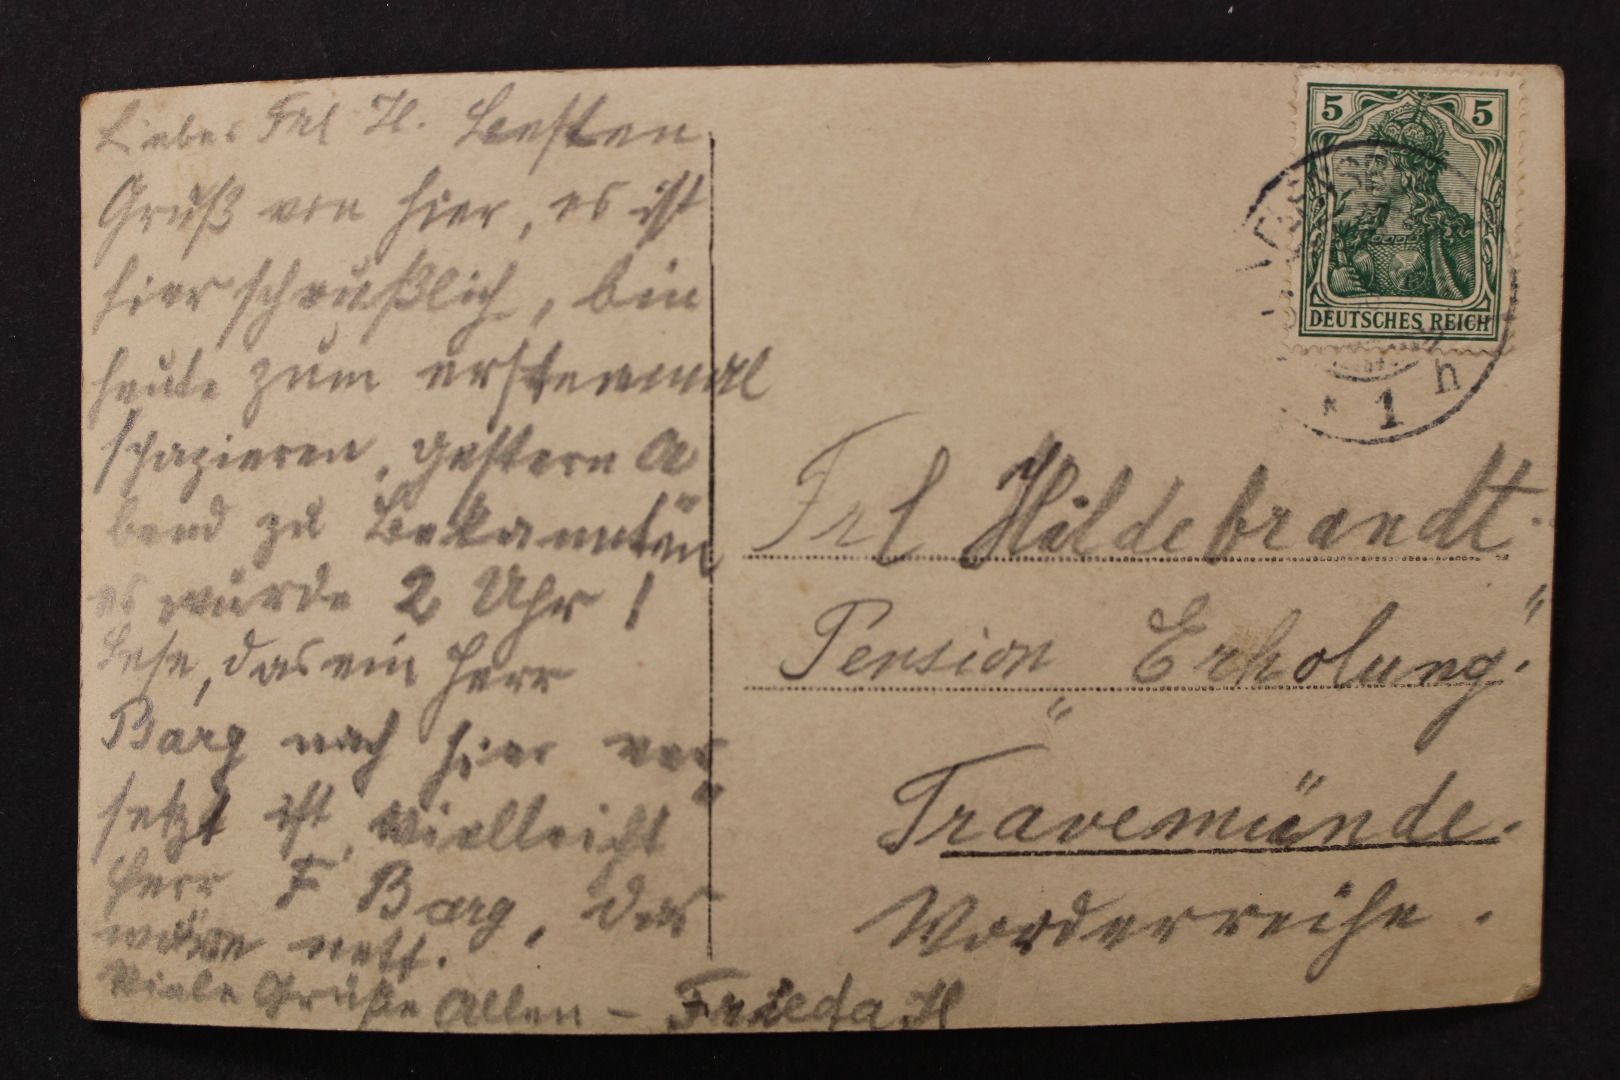 Liebes Frl H. Besten
Gruß von hier, es ist
hier scheußlich, bin
heute zum erstenmal
spazieren, gestern A
bend zu Bekannten
es wurde 2 Uhr!
Lese, das ein Herr
Barg nach hier ver
setzt ist, vielleicht
Herr F Barg, das
wäre nett.
Viele Grüße Allen – Frieda H
5 5
DEUTSCHES REICH
* 1 h
Frl Hildebrandt.
Pension „Erholung“.
Travemünde.
Vorderreihe.